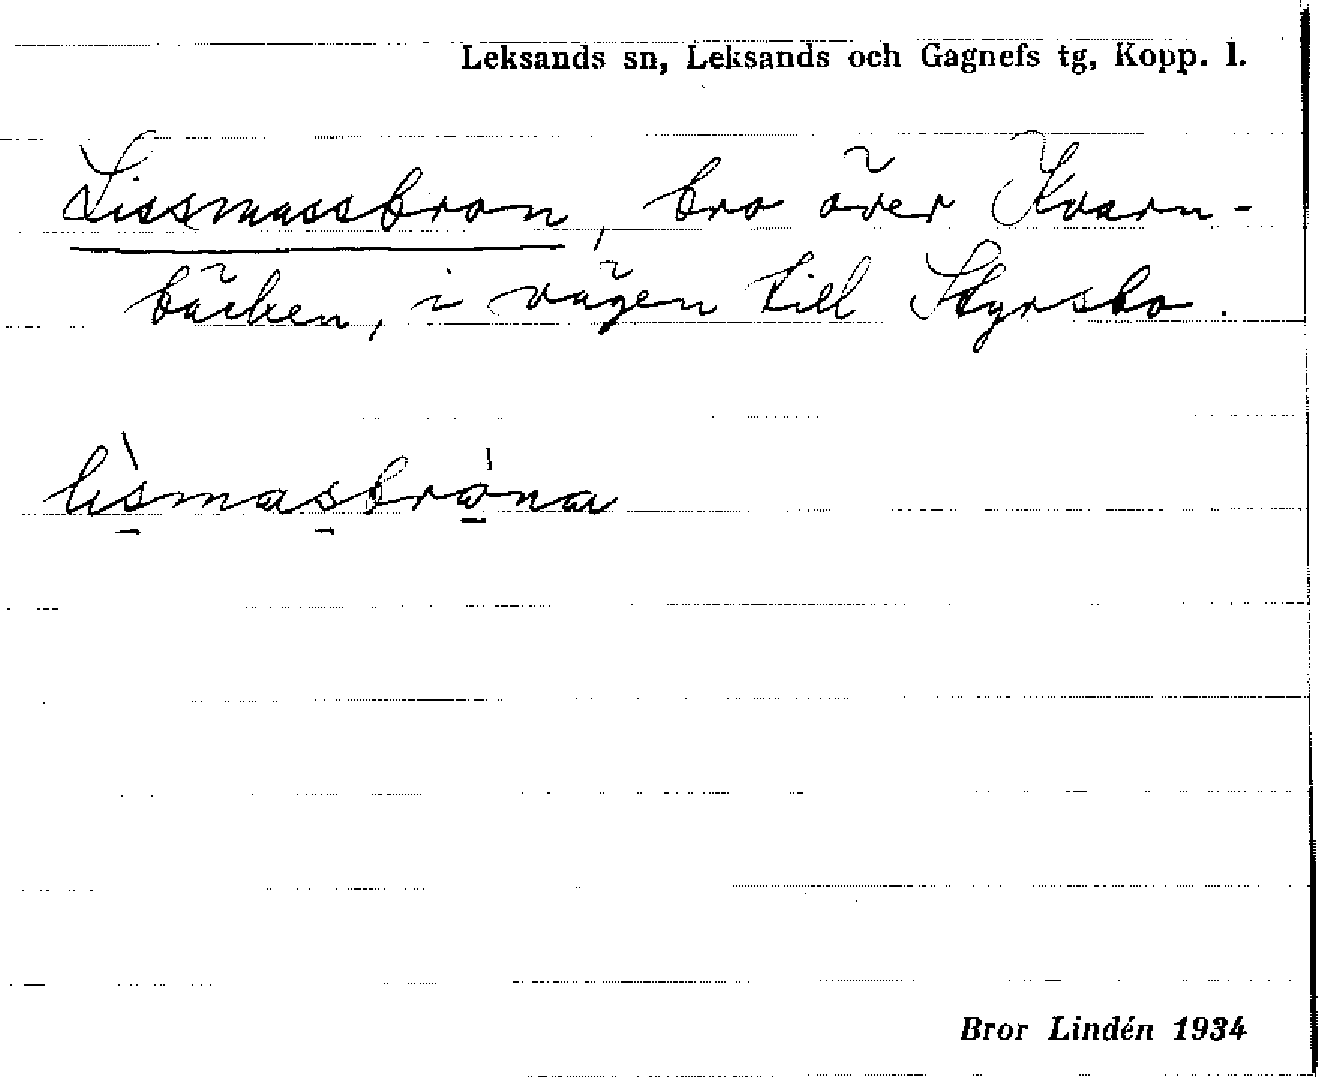 Leksands sn, Leksands och Gagnefs tg, Kopp. l.
Lissmassbron, bro över Kvarn-
bäcken, i vägen till Styrsbo.
lìsmasbro̍na
Bror Lindén 1934